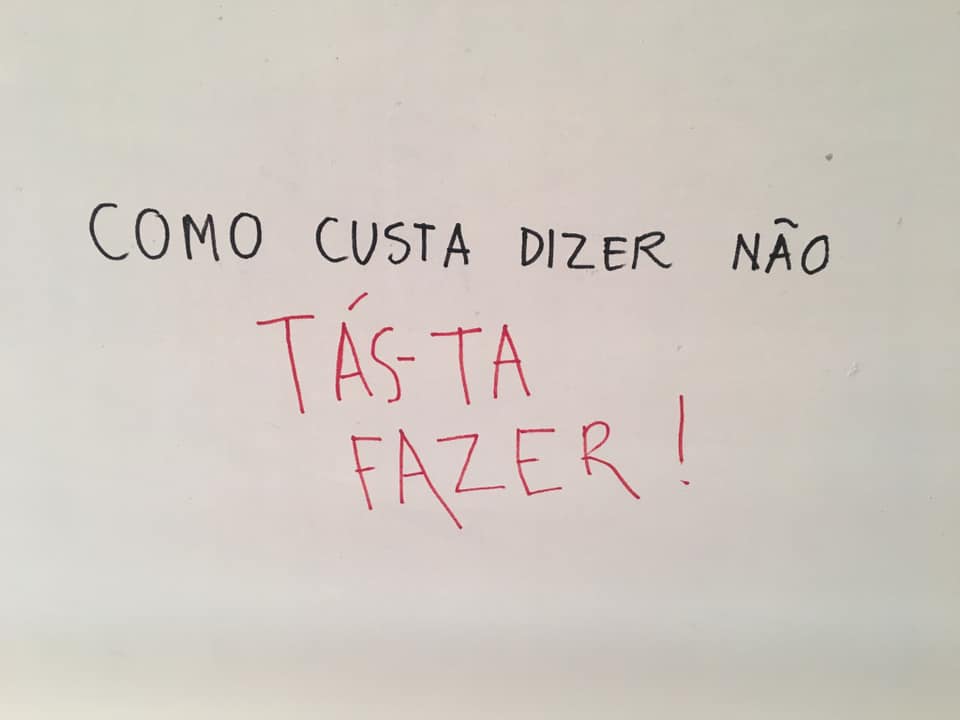 COMO CUSTA DIZER NÃO
TÁS-TA
FAZER!